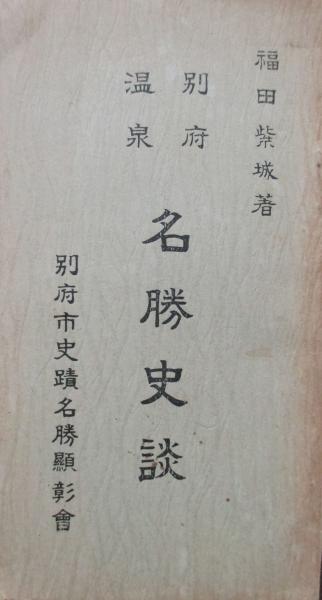 福田紫城著
別府
温泉
名勝史談
別府市史蹟名勝顯彰會